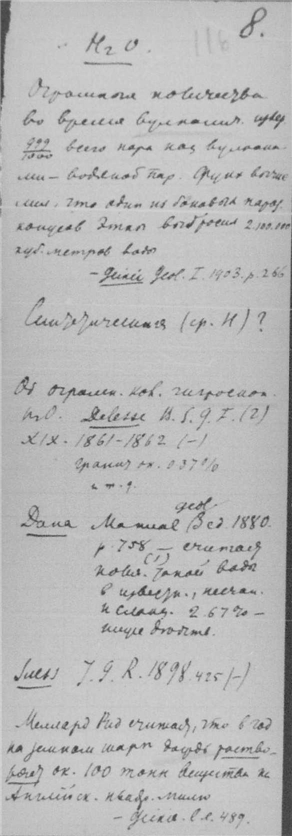 116 8.
H2O.
Огромныя количества
во время вулканич. извер
999/1000 всего пара над вулкана
ми — водяной пар. Фуке вычис
лил, что один из боковых параз.
конусов Этны выбросил 2.100.000
куб. метров воды
— Geikie Geol. I. 1903. p. 266
Синтетическия (ср. H) ?
Об огромн. кол. гигроскоп.
H2O. Delesse B. S. g. F. (2)
XIX. 1861–1862 (—)
гранит ок. 0.37%
и т. д.
Dana Manual geol 3 ed. 1880.
p. 758 — (1) считая
колич. такой воды
в известн., песчан.
и сланц. 2.67% —
Suess J. g. R. 1898. 425 (—)
Меллард Рид считая, что в год
на земном шаре дождь раство-
ряет ок. 100 тонн вещества на
Английск. квадр. милю
— Geikie. l. c. 489.